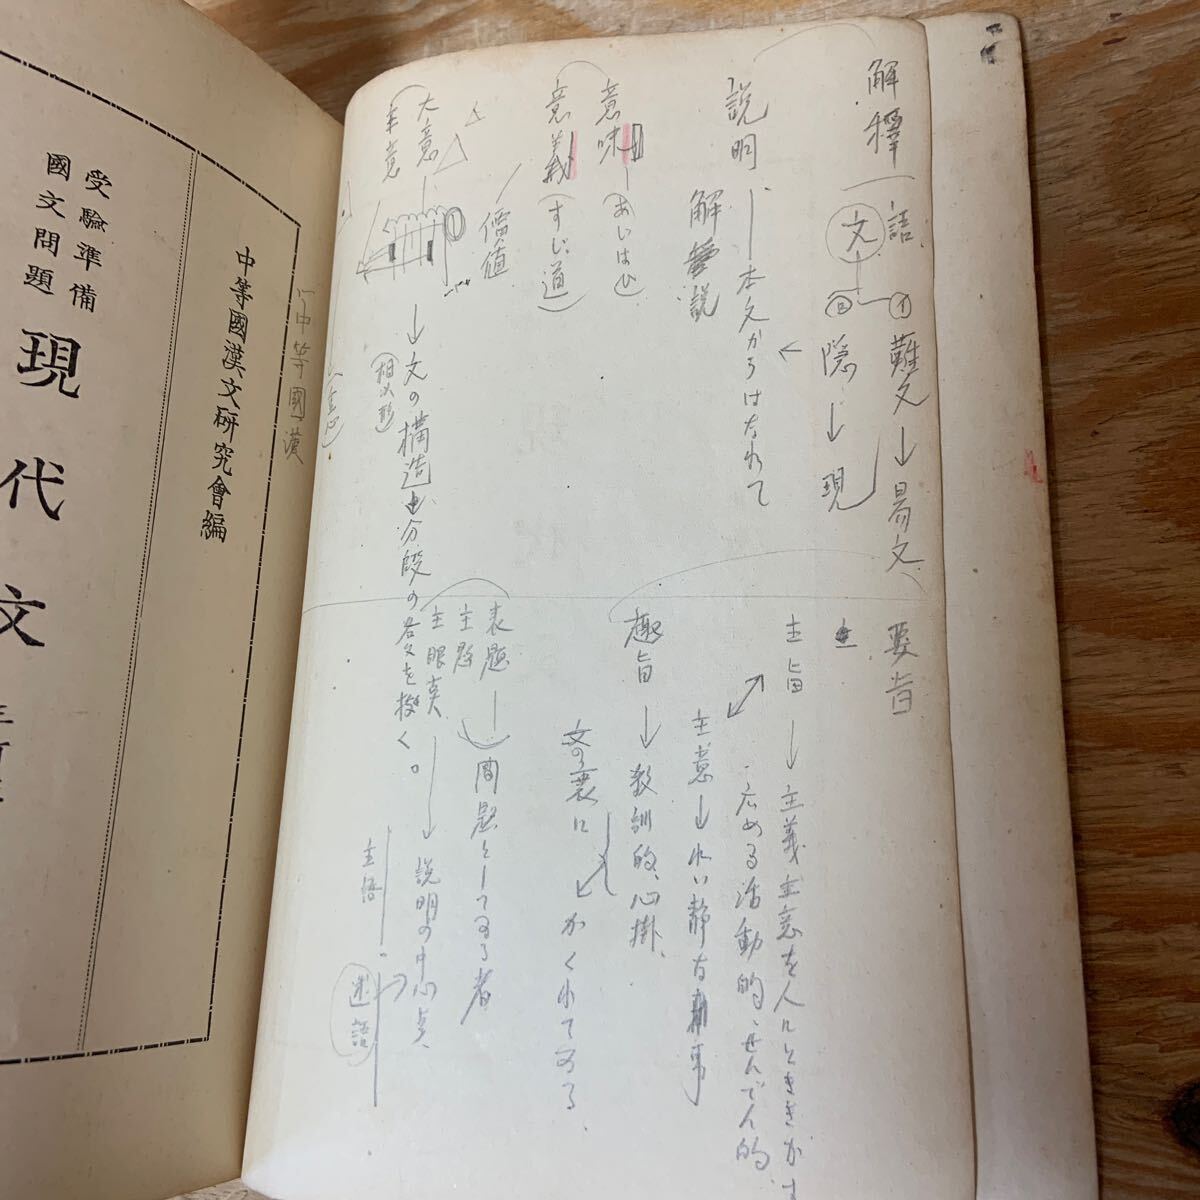 解釋
語
文
イ 難文→易文
ロ 隠→現
説明 本文からはなれて
解説
意味 (あいはひ)
意義 (すじ道)
價値
大意
主意
→文の構造
分段の各文を
相
要旨
主旨→主義主意を人にときき
広める活動的、せんでん的
主意→
静な 事
趣旨→教訓的、心掛、
文の裏に
かくれてゐる
表題
主題
問題としてゐる者
主眼点→説明の中心点
主語
述語
中等國漢
中等國漢文研究會編
受驗準備
國文問題
現代文